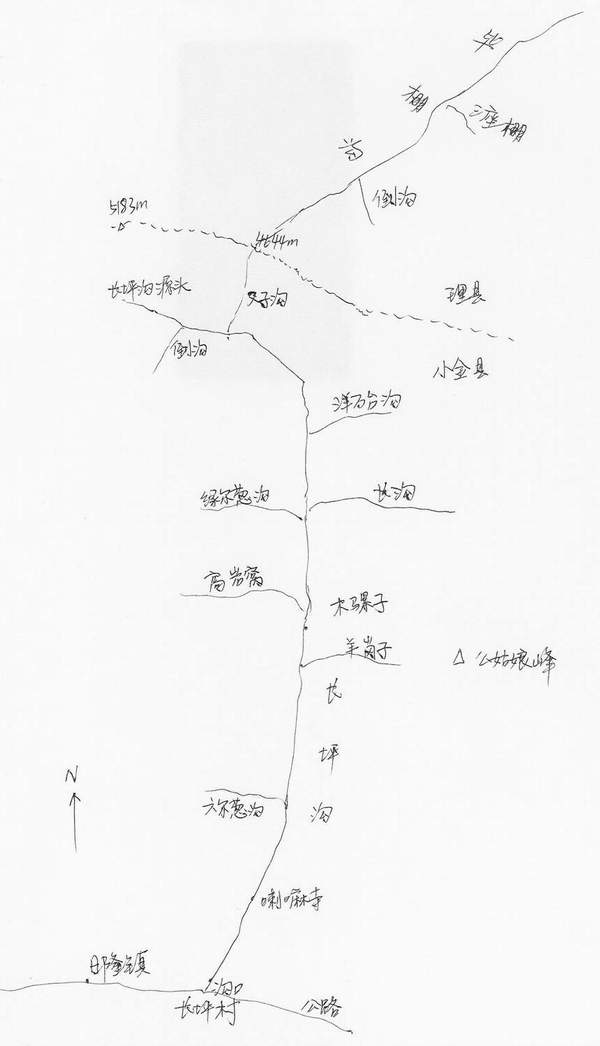 毕
棚
沟
三座棚
倒沟
5183m
4644m
长坪沟源头
叉子沟
倒沟
理县
小金县
洋石台沟
尔葱沟
长沟
高岩窝
木骡子
羊岗子
幺姑娘峰
长
坪
沟
N
六尔葱沟
喇嘛寺
日隆镇
沟口
长坪村
公路